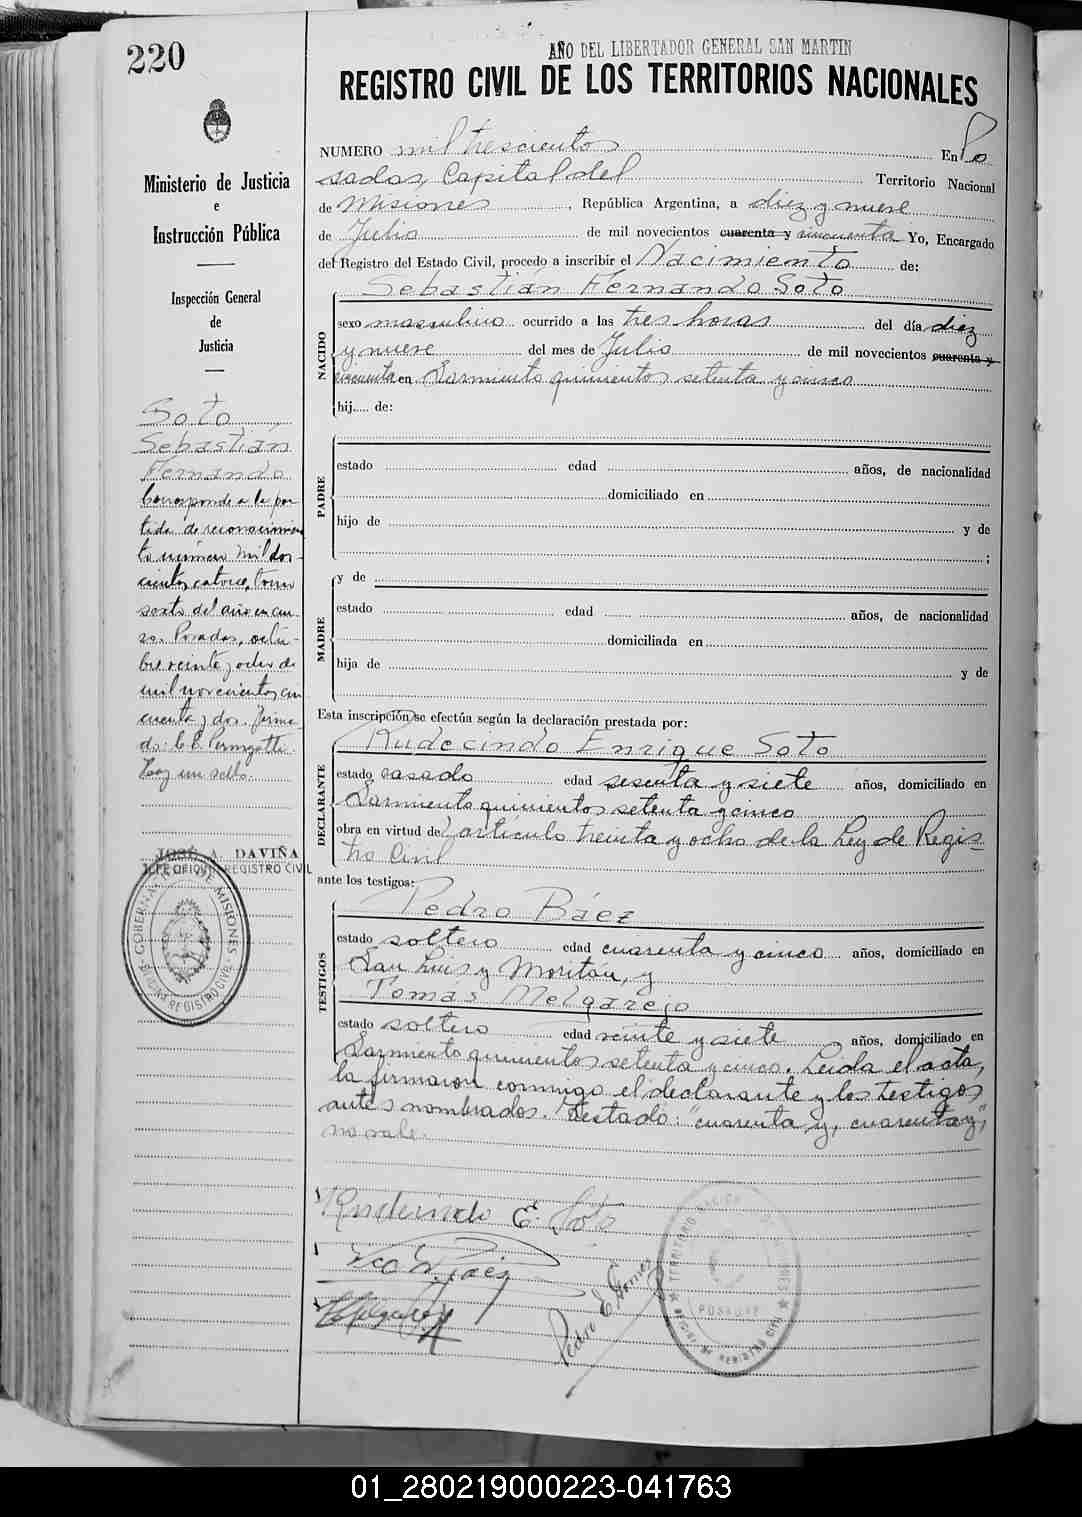 220
AÑO DEL LIBERTADOR GENERAL SAN MARTIN
REGISTRO CIVIL DE LOS TERRITORIOS NACIONALES
Ministerio de Justicia
e
Instrucción Pública
Inspección General
de
Justicia
Soto
Sebastián
Fernando
Corresponde a la par-
tida de reconocimien
to número mil dos-
cientos catorce, tomo
sexto del año en cur-
so. Posadas, octu-
bre veinte y ocho de
mil novecientos cin
cuenta y dos. Firma-
do:
Hay un sello.
JOSÉ A. DAVIÑA
JEFE OFICINA REGISTRO CIVIL
GOBERNACION DE MISIONES
OFICINA REGISTRO CIVIL
NUMERO mil trescientos En Po
sadas, Capital del Territorio Nacional
de Misiones, República Argentina, a diez y nueve
de Julio de mil novecientos cuarenta y cincuenta Yo, Encargado
del Registro del Estado Civil, procedo a inscribir el Nacimiento de:
Sebastián Fernando Soto
NACIDO
sexo masculino ocurrido a las tres horas del día diez
y nueve del mes de Julio de mil novecientos cuarenta y
cincuenta en Sarmiento quinientos setenta y cinco
hij..... de:
PADRE
estado edad años, de nacionalidad
domiciliado en
hijo de y de
;
MADRE
y de
estado edad años, de nacionalidad
domiciliada en
hija de y de
Esta inscripción se efectúa según la declaración prestada por:
DECLARANTE
Rudecindo Enrique Soto
estado casado edad sesenta y siete años, domiciliado en
Sarmiento quinientos setenta y cinco
obra en virtud del artículo treinta y ocho de la Ley de Regis
tro Civil
ante los testigos:
TESTIGOS
Pedro Báez
estado soltero edad cuarenta y cinco años, domiciliado en
San Luis y Moritan, y
Tomás Melgarejo
estado soltero edad veinte y siete años, domiciliado en
Sarmiento quinientos setenta y cinco. Leída el acta,
la firmaron conmigo el declarante y los testigos
antes nombrados. Testado: "cuarenta y, cuarenta y,"
no vale.
Rudecindo E. Soto
Báez
Melgarejo
Pedro E. Gomez
TERRITORIO NACIONAL DE MISIONES
POSADAS
OFICINA DE REGISTRO CIVIL
01_280219000223-041763